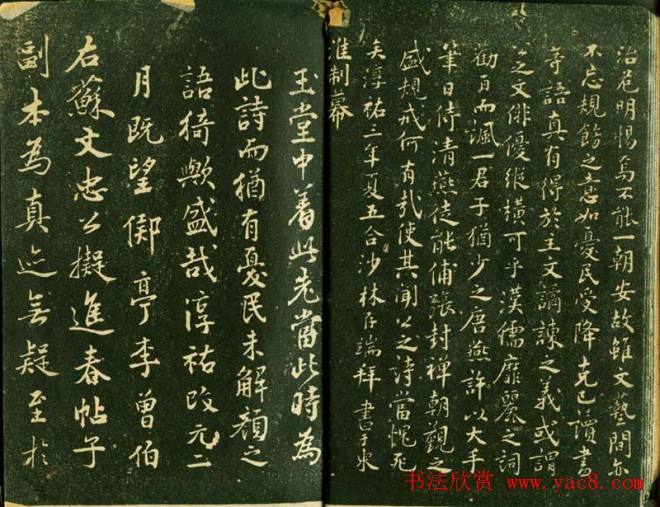 治危明惕焉不能一朝安故雖文藝間亦
不忘規飭之意如憂民受降克己讀書
等語真有得於主文譎諫之義或謂
公之文俳優縱橫可乎漢儒靡麗之詞
勸百而諷一君子猶少之唐燕許以大手
筆日侍清燕徒能鋪張封禪朝覲之
盛規戒何有哉使其聞公之詩當愧死
矣淳祐三年夏五合沙林存端拜書于東
淮制幕
玉堂中著此老當此時為
此詩而猶有憂民未解顏之
語猗歟盛哉淳祐改元二
月既望邸亭李曾伯
右蘇文忠公擬進春帖子
副本為真迹無疑至於
书法欣赏 www.yac8.com